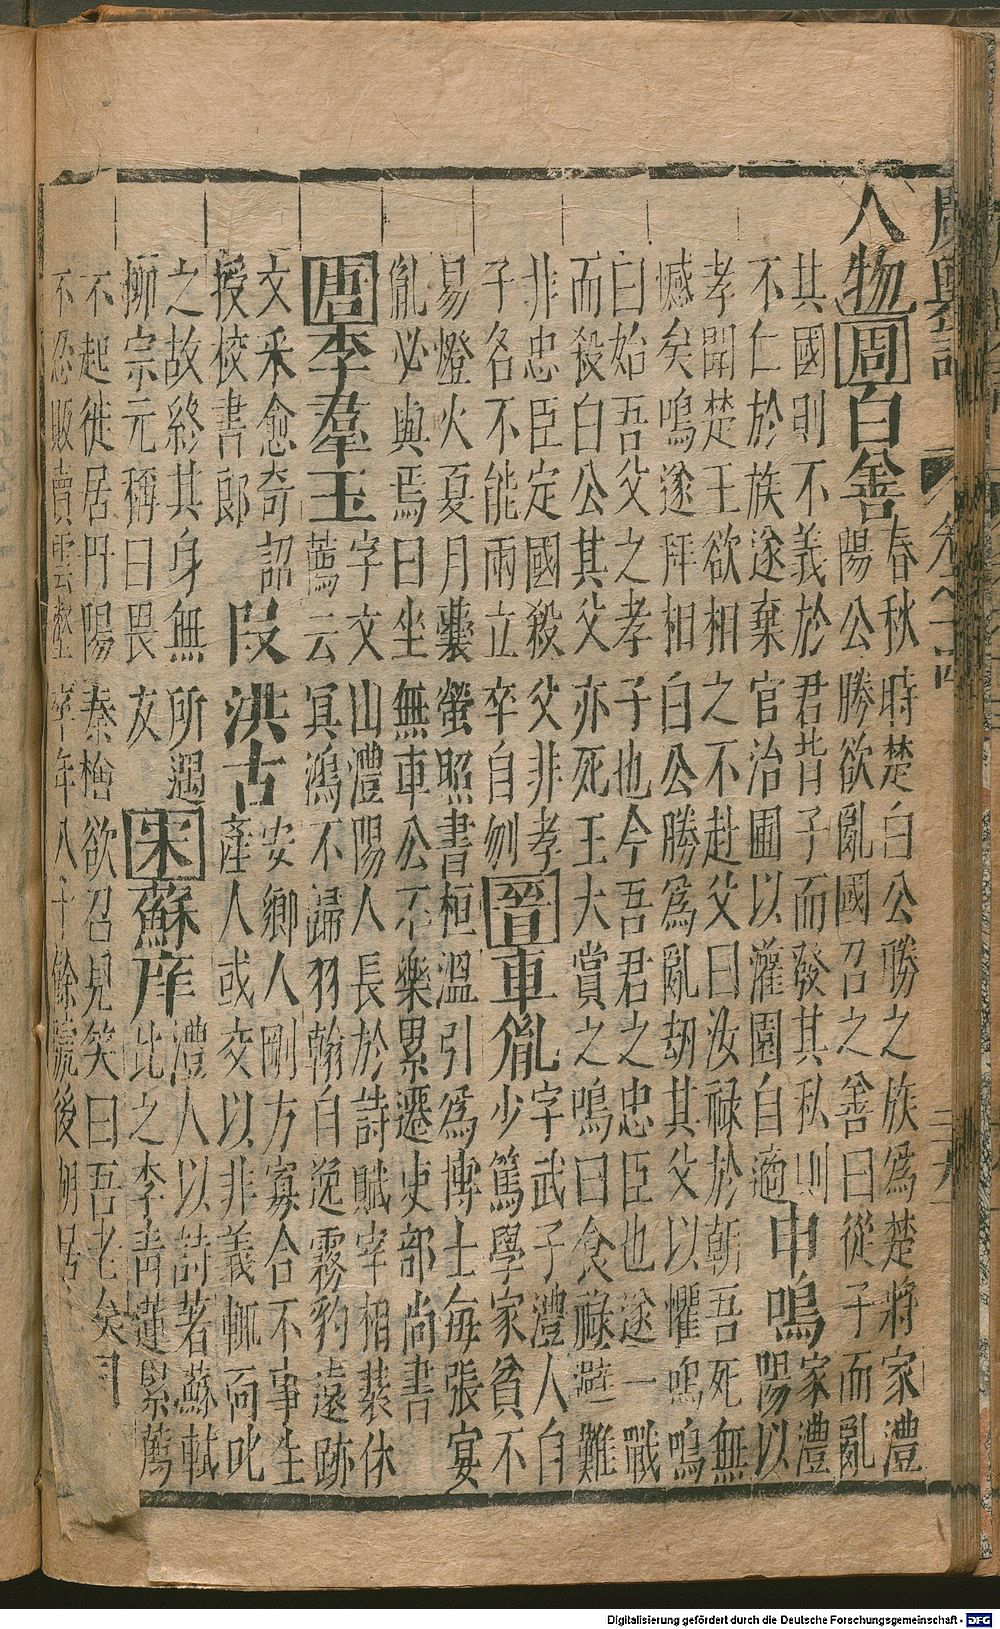 廣輿記
人物周白善
春秋時楚白公勝之族爲楚將家澧
陽公勝欲亂國召之善曰從子而亂
其國則不義於君背子而發其私則
不仁於族遂棄官治圃以灌園自適
申鳴
家澧
陽以
孝聞楚王欲相之不赴父曰汝祿於朝吾死無
憾矣鳴遂拜相白公勝爲亂刼其父以懼鳴鳴
曰始吾父之孝子也今吾君之忠臣也遂一戰
而殺白公其父亦死王大賞之鳴曰食祿避難
非忠臣定國殺父非孝
子各不能兩立卒自刎
晉車胤
字武子澧人自
少篤學家貧不
易燈火夏月囊螢照書桓溫引爲博士每張宴
胤必與焉曰坐無車公不樂累遷吏部尚書
唐李羣玉
字文山澧陽人長於詩賦宰相裴休
薦云冥鴻不歸羽翰自逸霧豹遠跡
文采愈奇詔
授校書郎
段洪古
安鄉人剛方寡合不事生
產人或交以非義輒面叱
之故終其身無所遇
柳宗元稱曰畏友
宋蘇庠
澧人以詩著蘇軾
比之李青蓮累薦
不起徙居丹陽秦檜欲召見笑曰吾老矣
不忍販賣雲壑卒年八十餘號後湖居
Digitalisierung gefördert durch die Deutsche Forschungsgemeinschaft - DFG